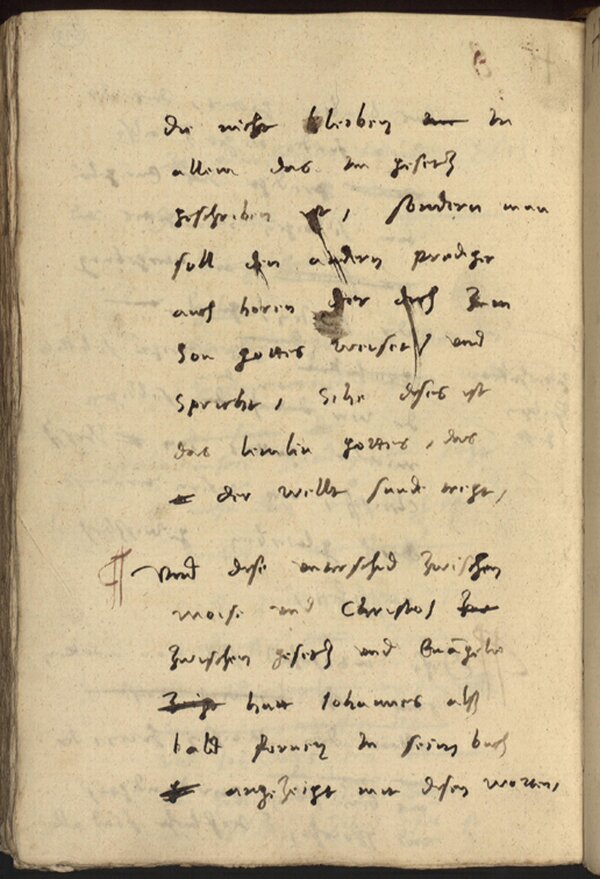 die nicht bleiben in
allem das im gesetz
geschriben ist, sondern man
soll den andern prediger
auch horen der dich zum
Son gottes weiset und
spricht, Sihe dises ist
das lemlin gottes, das
der wellt sunde tregt,
Und dise unterschid zwischen
Moise und Christo
zwischen gesetz und Euangelio
hatt Iohannes alß
bald fornen in seim buch
angezeigt mit disen worten,